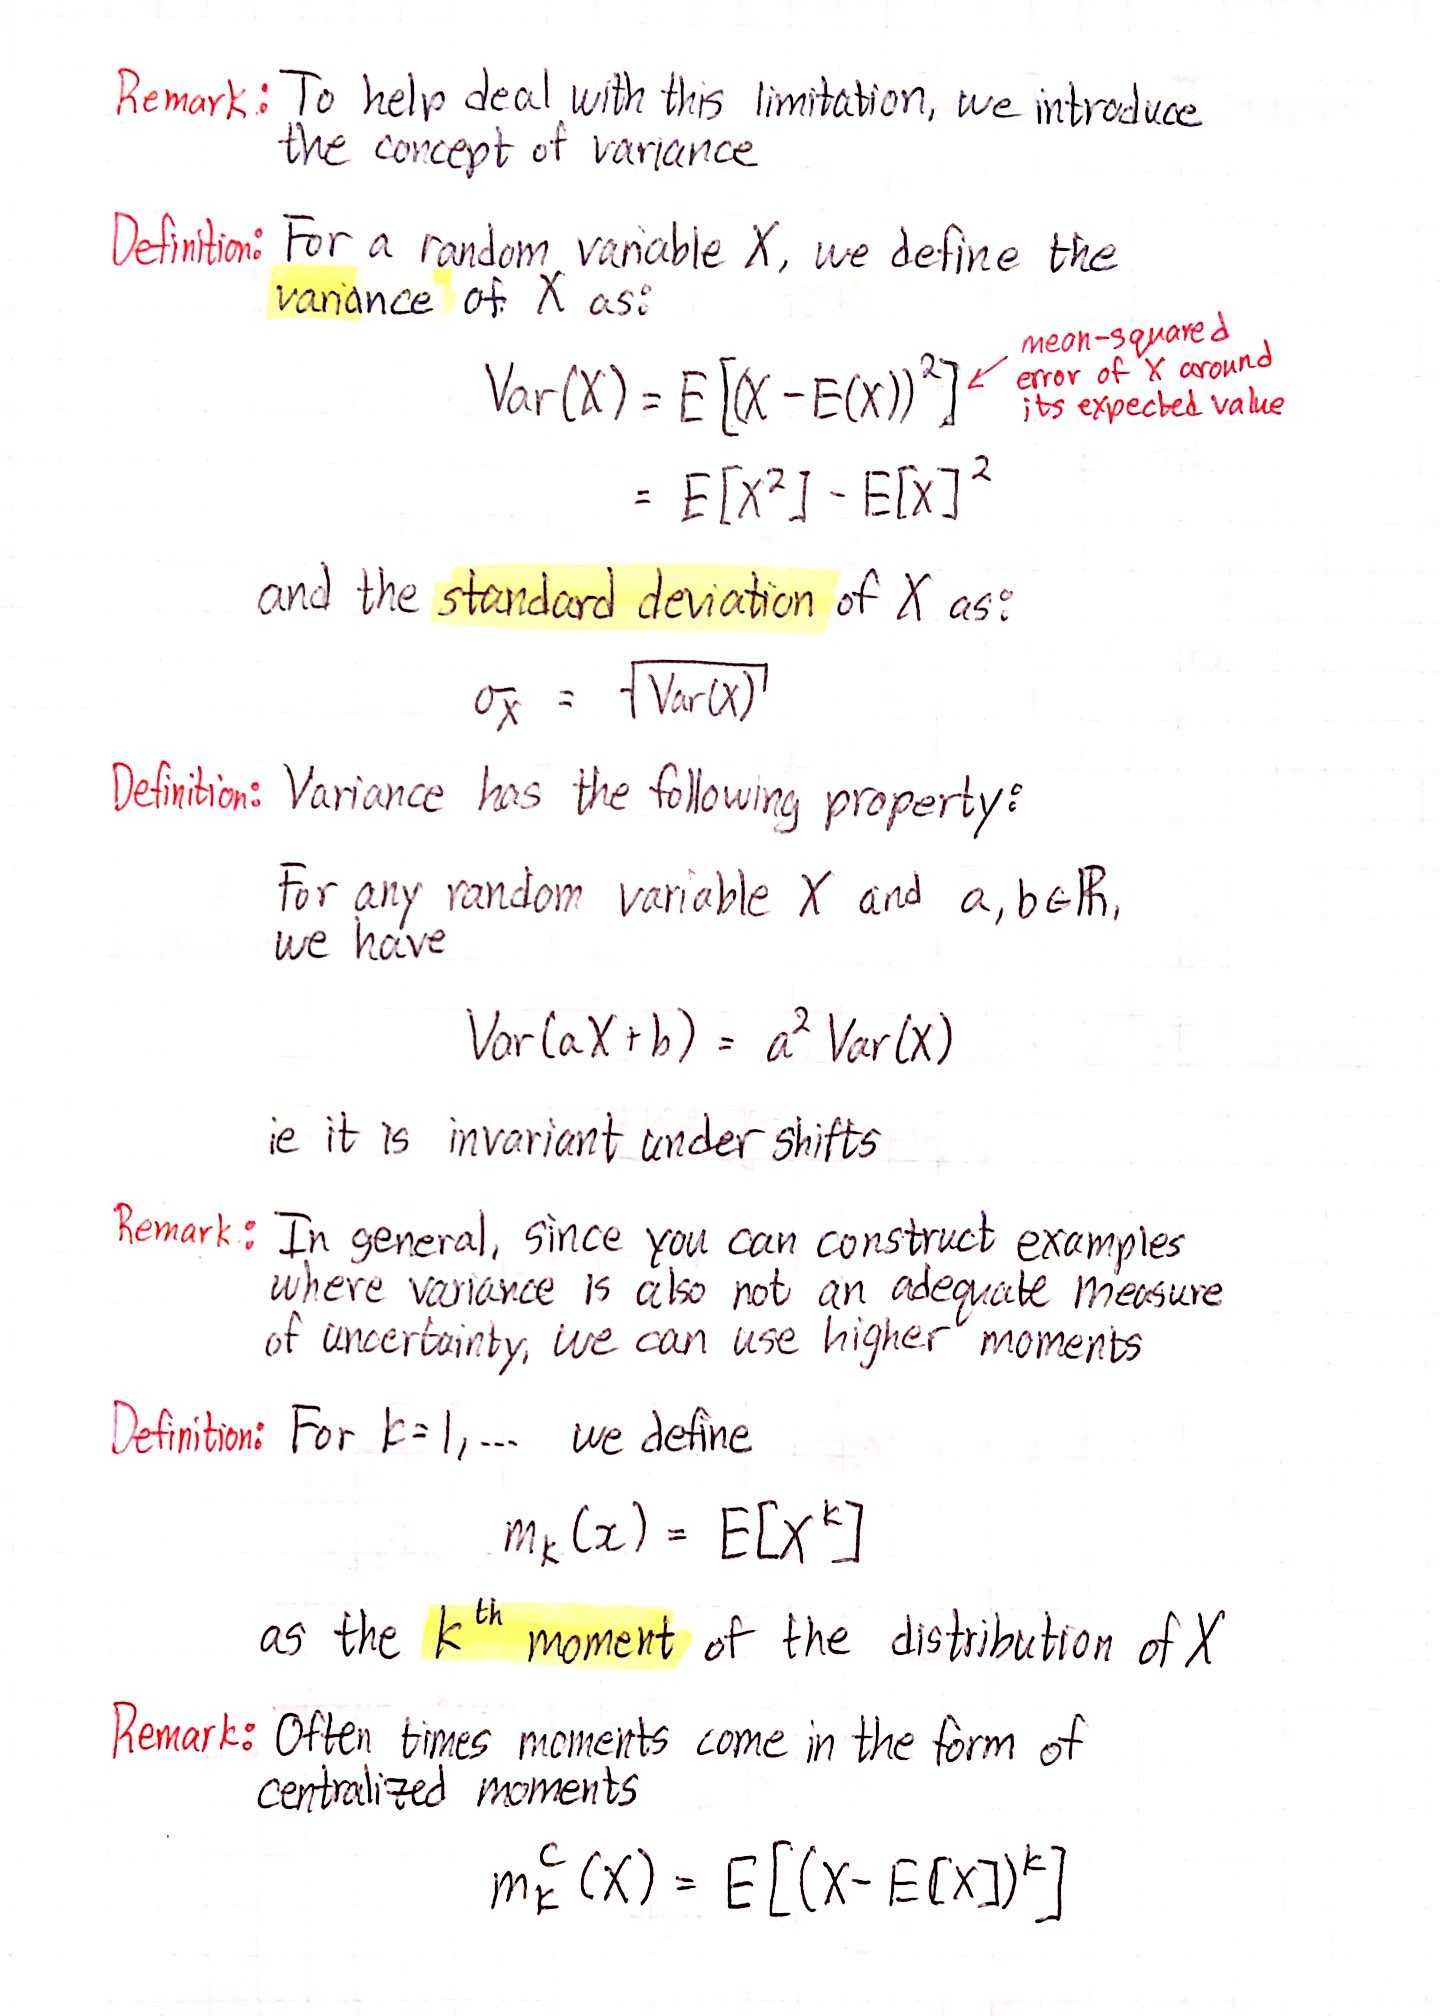 Remark: To help deal with this limitation, we introduce
the concept of variance
Definition: For a random variable X, we define the
variance of X as:
Var(X) = E[(X - E(X))²] ← mean-squared
error of X around
its expected value
= E[X²] - E[X]²
and the standard deviation of X as:
σ_X = √Var(X)
Definition: Variance has the following property:
For any random variable X and a, b ∈ ℝ,
we have
Var(aX + b) = a² Var(X)
ie it is invariant under shifts
Remark: In general, since you can construct examples
where variance is also not an adequate measure
of uncertainty, we can use higher moments
Definition: For k=1, ... we define
m_k(x) = E[X^k]
as the k^th moment of the distribution of X
Remark: Often times moments come in the form of
centralized moments
m_k^c(X) = E[(X - E[X])^k]